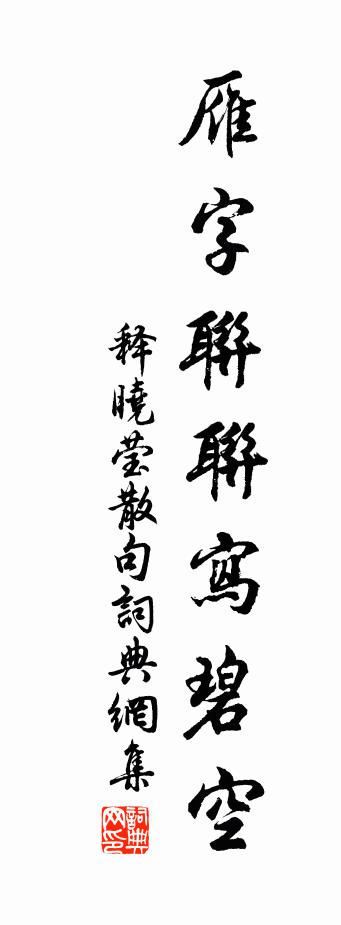 雁字聯聯寫碧空
释曉莹散句詞典網集
詞典网印